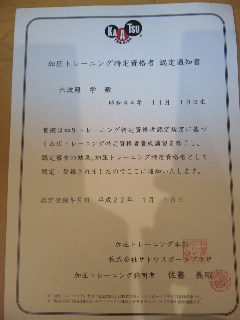 KAATSU
加圧トレーニング特定資格者 認定通知書
六波羅 学 殿
昭和44年 11月 18日生
貴殿は加圧トレーニング特定資格者認定規定に基づ
く加圧トレーニング特定資格者養成講習を修了し、
認定審査の結果、加圧トレーニング特定資格者として
認定・登録されましたのでここに通知いたします。
認定登録年月日 平成22年 1月 18日
加圧トレーニング本部
株式会社サトウスポーツプラザ
加圧トレーニング発明者 佐藤 義昭